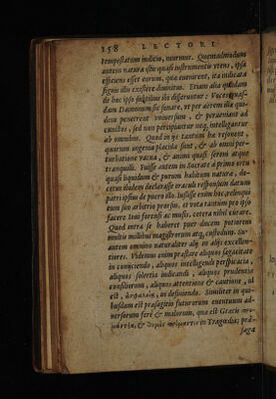 158 LECTORI
tempestatum indicio, moremur. Quemadmodum
autem natura istis quasi instrumentis utens, ipsa
efficiens esset eorum, quæ evenirent, ita indicata
signis illis existere divinitus. Etiam alia quædam
de hoc ipso subtilius ibi differuntur: Voces quas-
dam Dæmonum sic sonare, ut per aërem illæ qui-
dem penetrent universum, & perveniant ad
cunctos, sed non percipiantur neq; intelligantur
ab omnibus. Quod in iis tantum illæ resonent,
quorum ingenia placida sint, & ab omni per-
turbatione vacua, & animi quasi sereni atque
tranquilli. Fuisse autem in Socrate à prima ætate
quasi liquidum & purum habitum naturæ, do-
cerus illudem declarasse oraculi responsum datum
patri ipsius de puero illo. Iussisse enim hoc, relinqui
eum suo arbitrio prorsus, ut vota tantùm pro ipso
facere Iovi forensi ac musis, cetera nihil curare.
Quod intra se haberet puer ducem potiorem
multis millibus magistrorum atq; custodum. Su-
autem omnino naturaliter alij in alijs excellen-
tiores. Videmus enim præstare aliquos sagacitate
in conijciendo, aliquos intelligendi perspicacia,
aliquos solertia indicandi, aliquos prudentia
consiliorum, aliquos attentione & cautione, ut
est, in definiendo. Similiter in qui-
busdam est præsagitio futurorum eventuum ad-
versorum ferè & malorum, quæ est Græcis
& in Tragœdia; præ-
saga